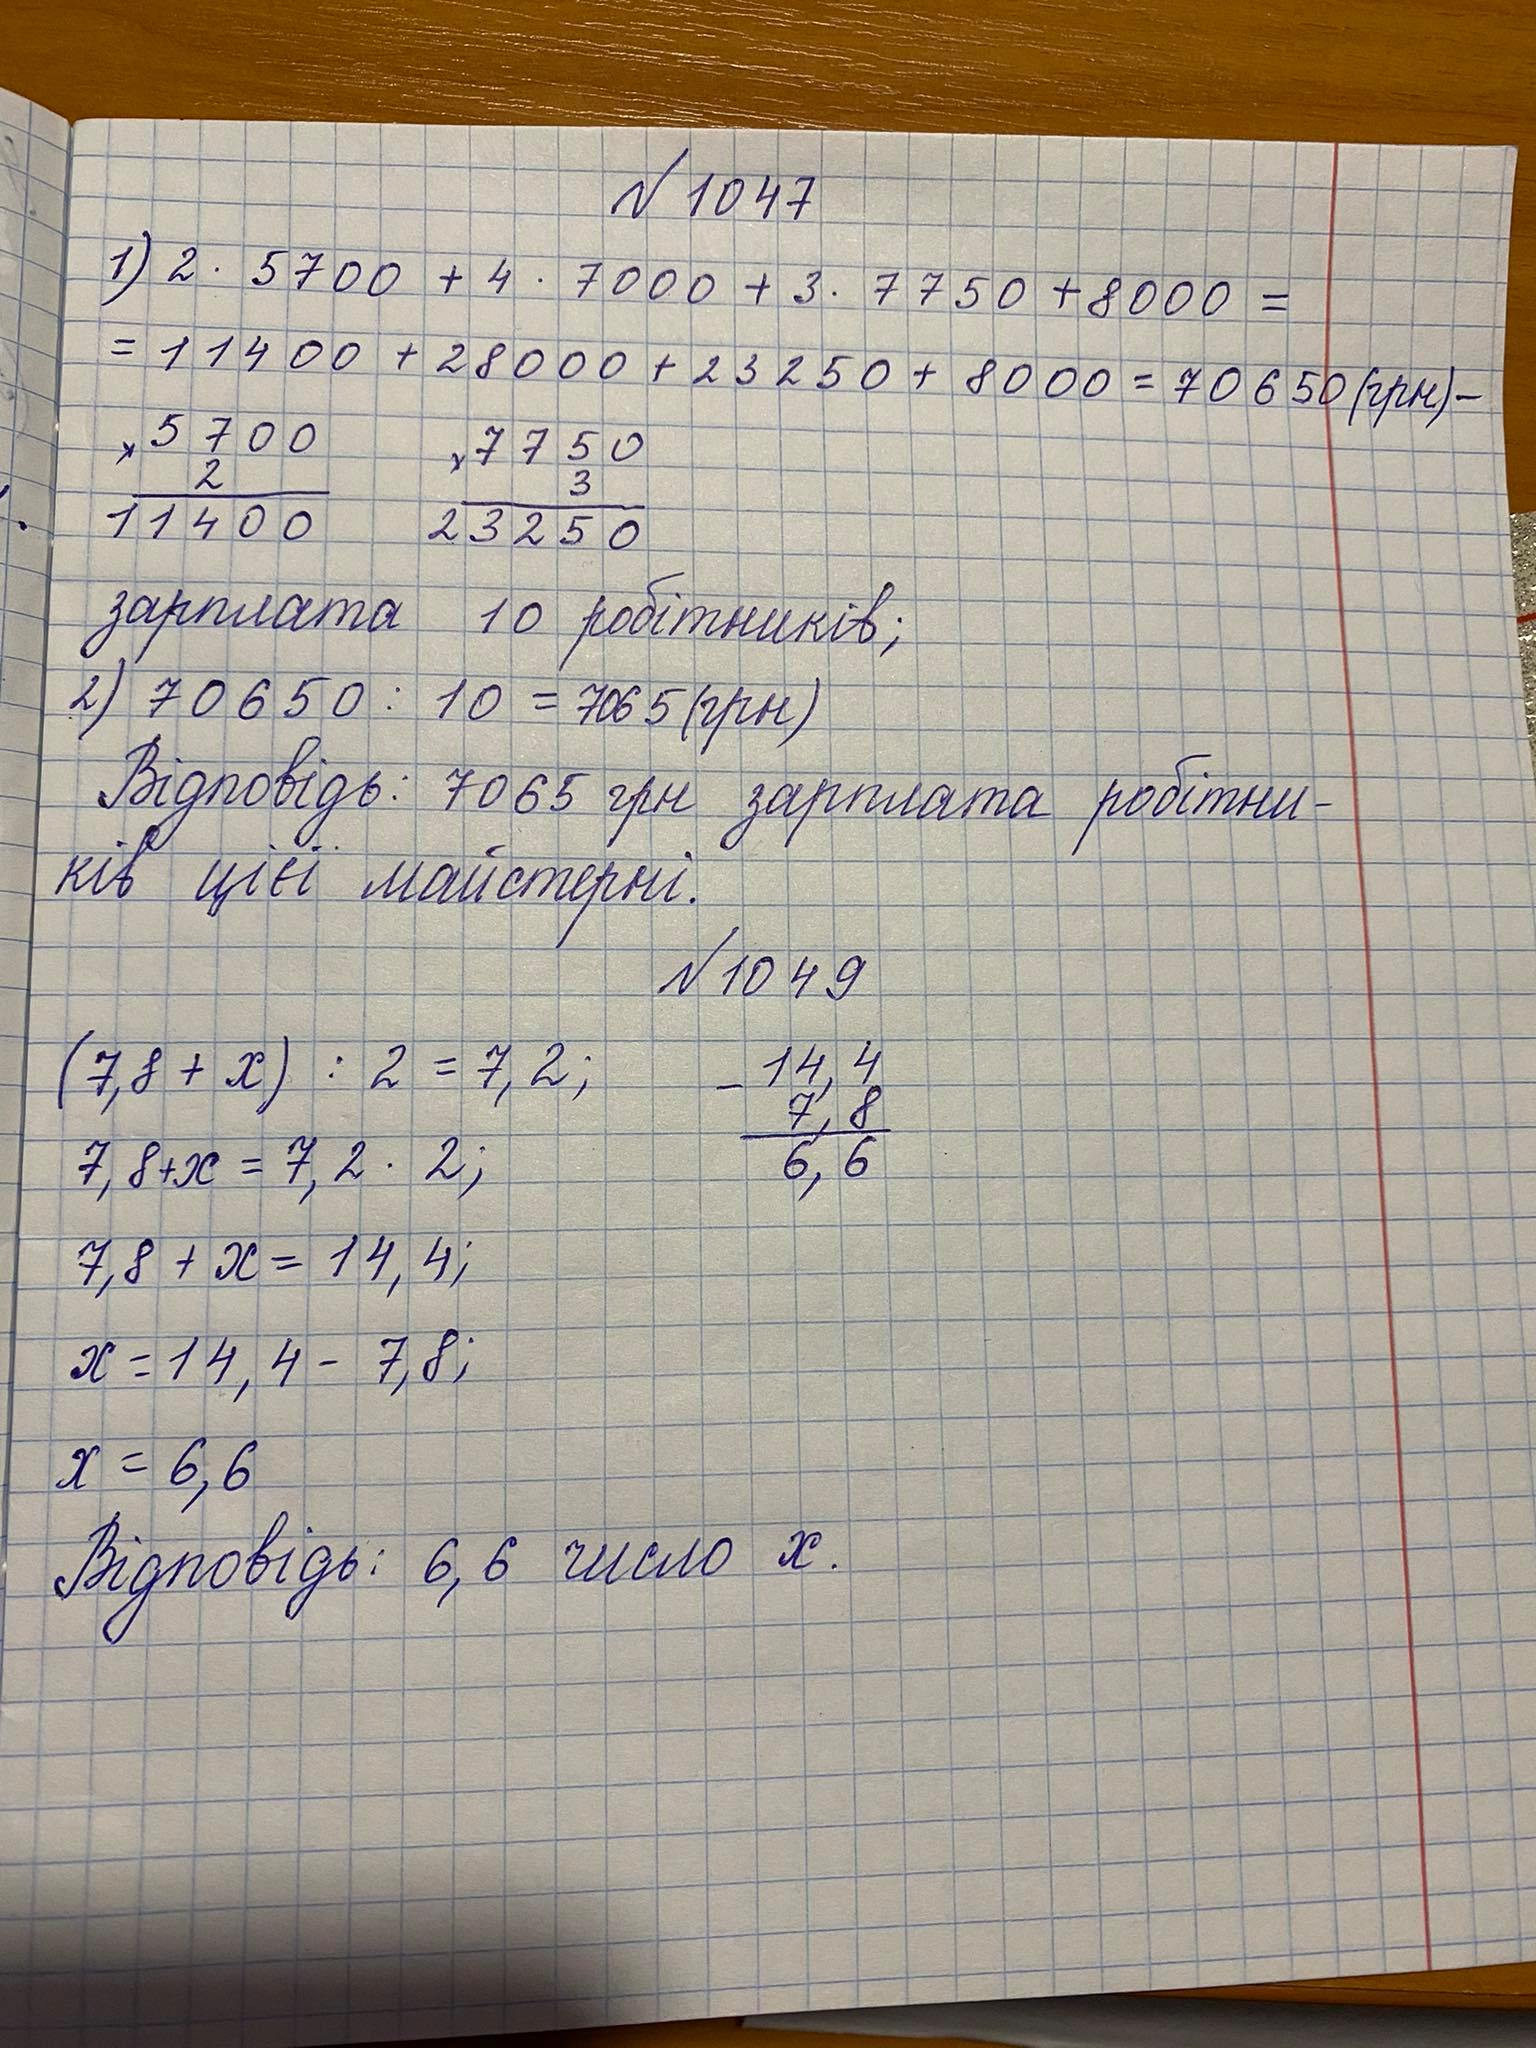 № 1047
1) 2 · 5700 + 4 · 7000 + 3 · 7750 + 8000 =
= 11400 + 28000 + 23250 + 8000 = 70650 (грн) –
× 5700 × 7750
2 3
11400 23250
зарплата 10 робітників;
2) 70650 : 10 = 7065 (грн)
Відповідь: 7065 грн зарплата робітни-
ків цієї майстерні.
№ 1049
(7,8 + x) : 2 = 7,2; – 14,4
7,8
7,8 + x = 7,2 · 2; 6,6
7,8 + x = 14,4;
x = 14,4 – 7,8;
x = 6,6
Відповідь: 6,6 число x.